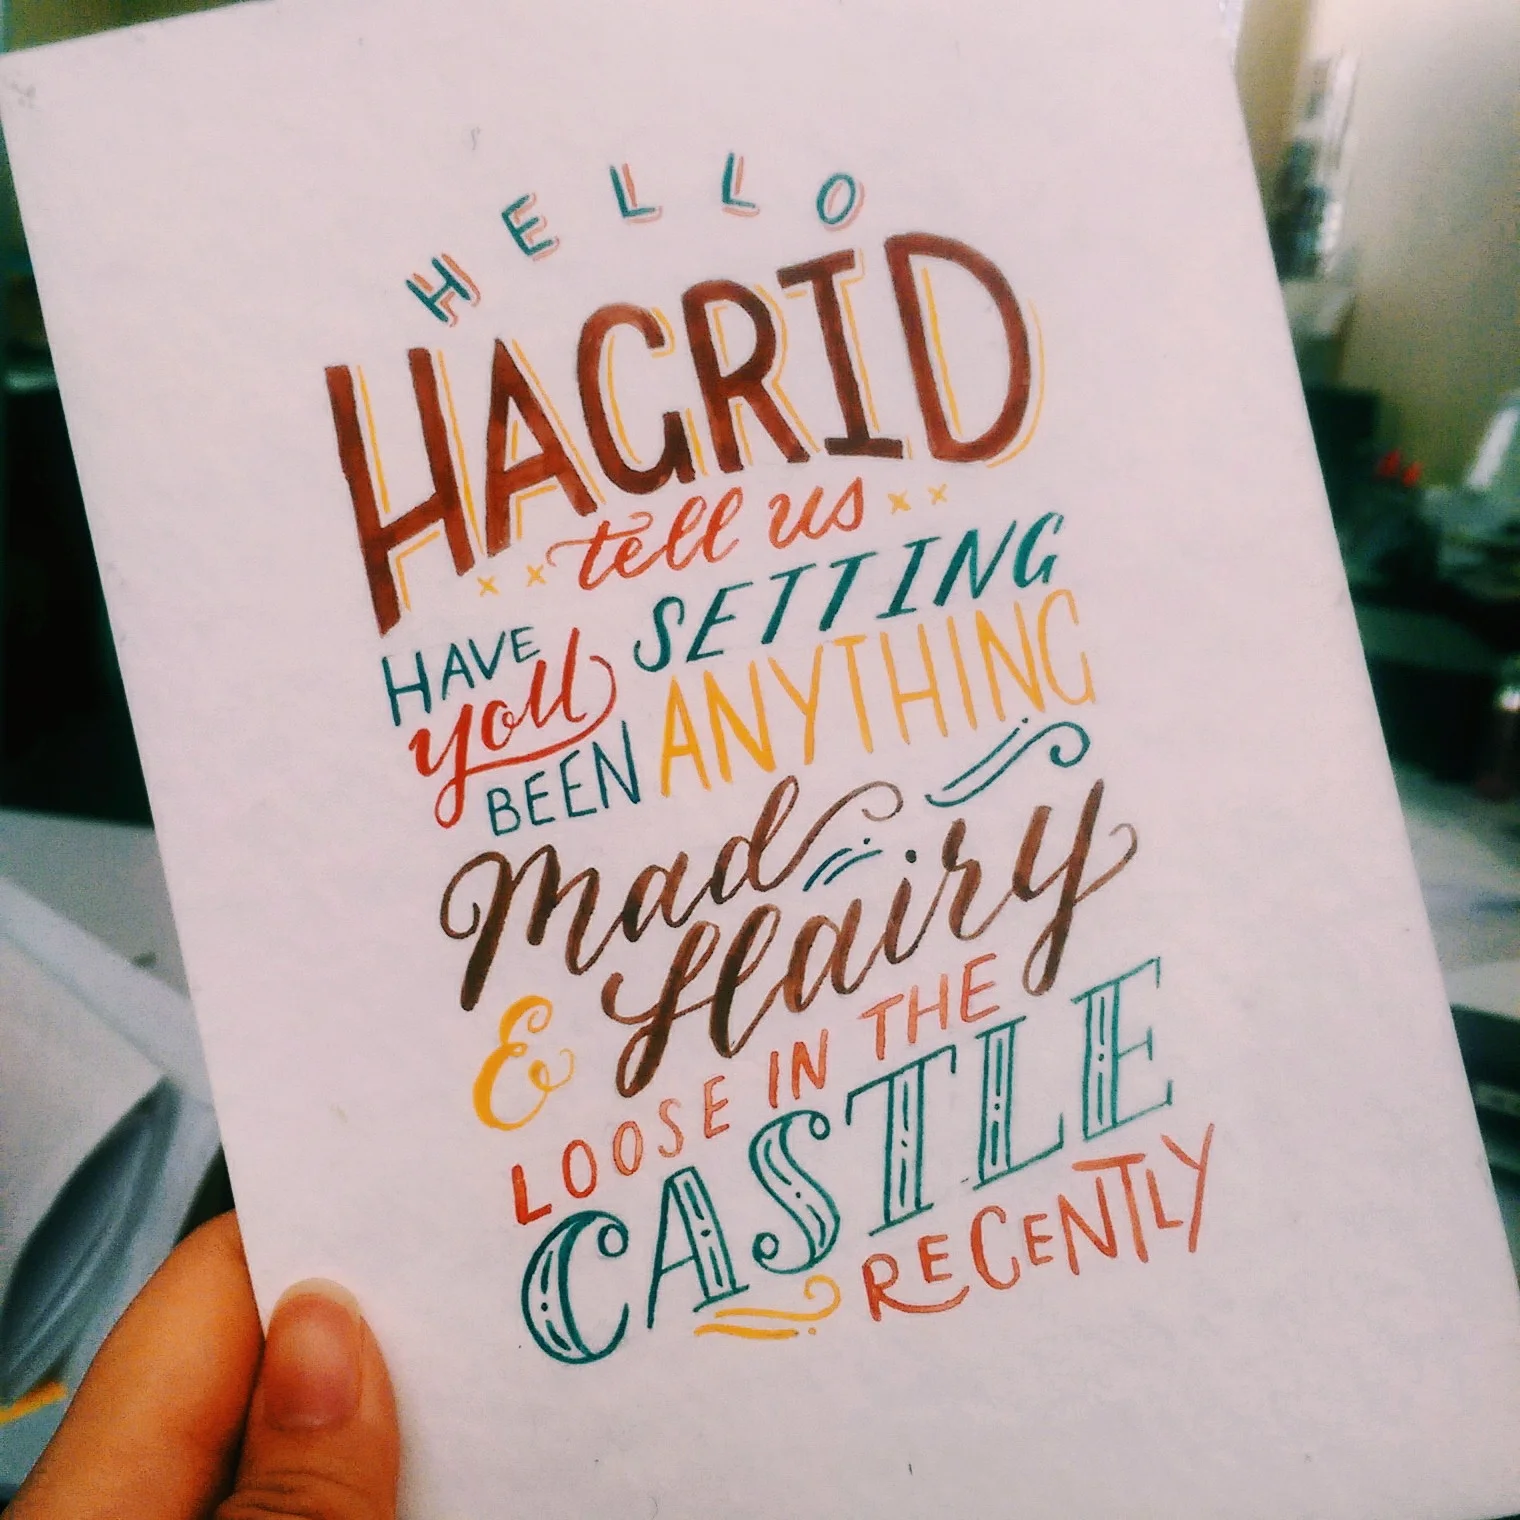 HELLO
HAGRID
tell us
HAVE SETTING
you ANYTHING
BEEN
Mad
& Hairy
LOOSE IN THE
CASTLE
RECENTLY